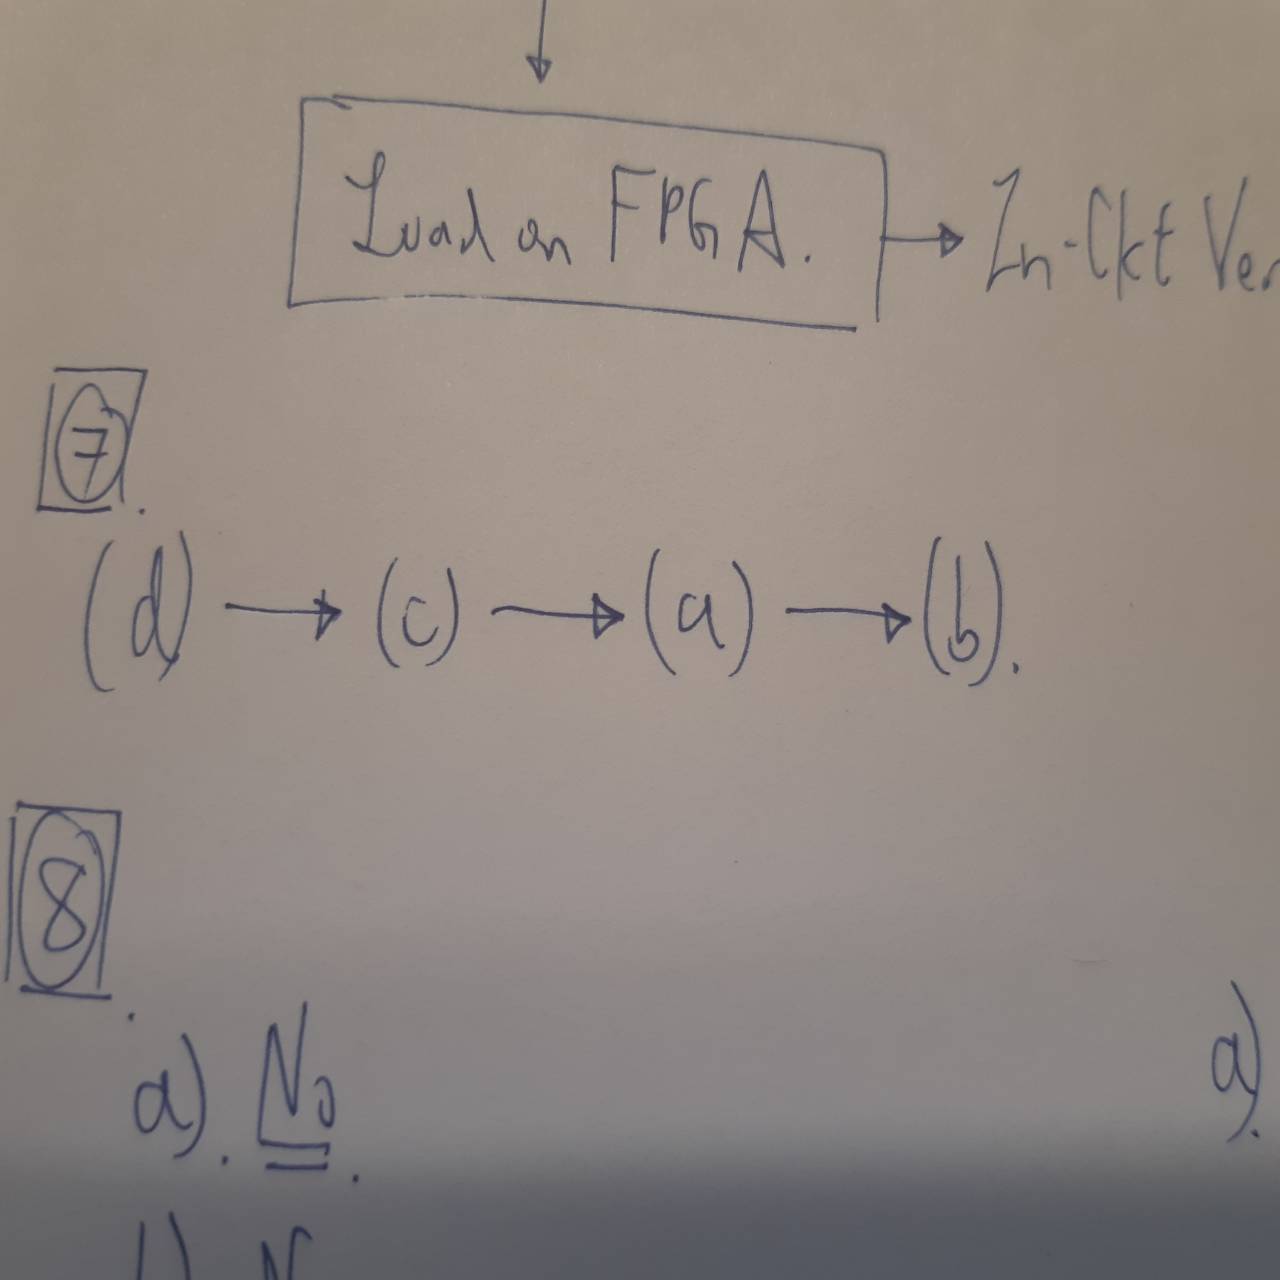 Load on FPGA. → In-Ckt Ver
7.
(d) → (c) → (a) → (b).
8.
a). No. a).